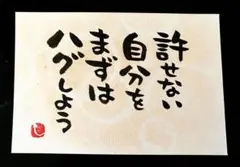 許せない
自分を
まずは
ハグしよう